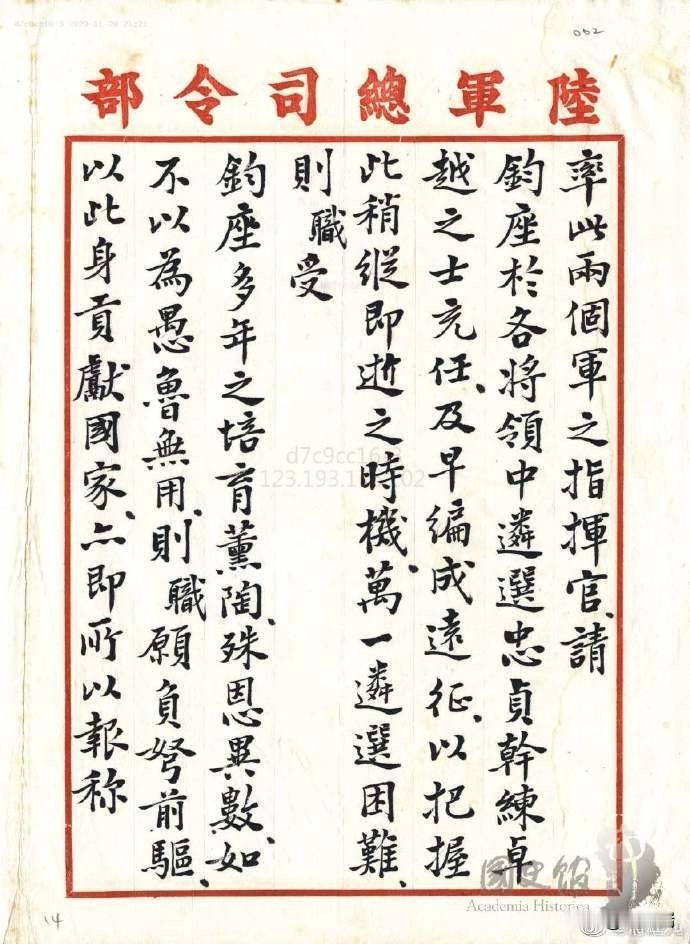 052
陸軍總司令部
率此兩個軍之指揮官、請
鈞座於各將領中遴選忠貞幹練卓
越之士充任、及早編成遠征、以把握
此稍縱即逝之時機、萬一遴選困難、
則職受
鈞座多年之培育薰陶、殊恩異數、如
不以為愚魯無用、則職願負弩前驅、
以此身貢獻國家、亦即所以報称
d7c9cc16
123.193.1
國史館
Academia Historica
14